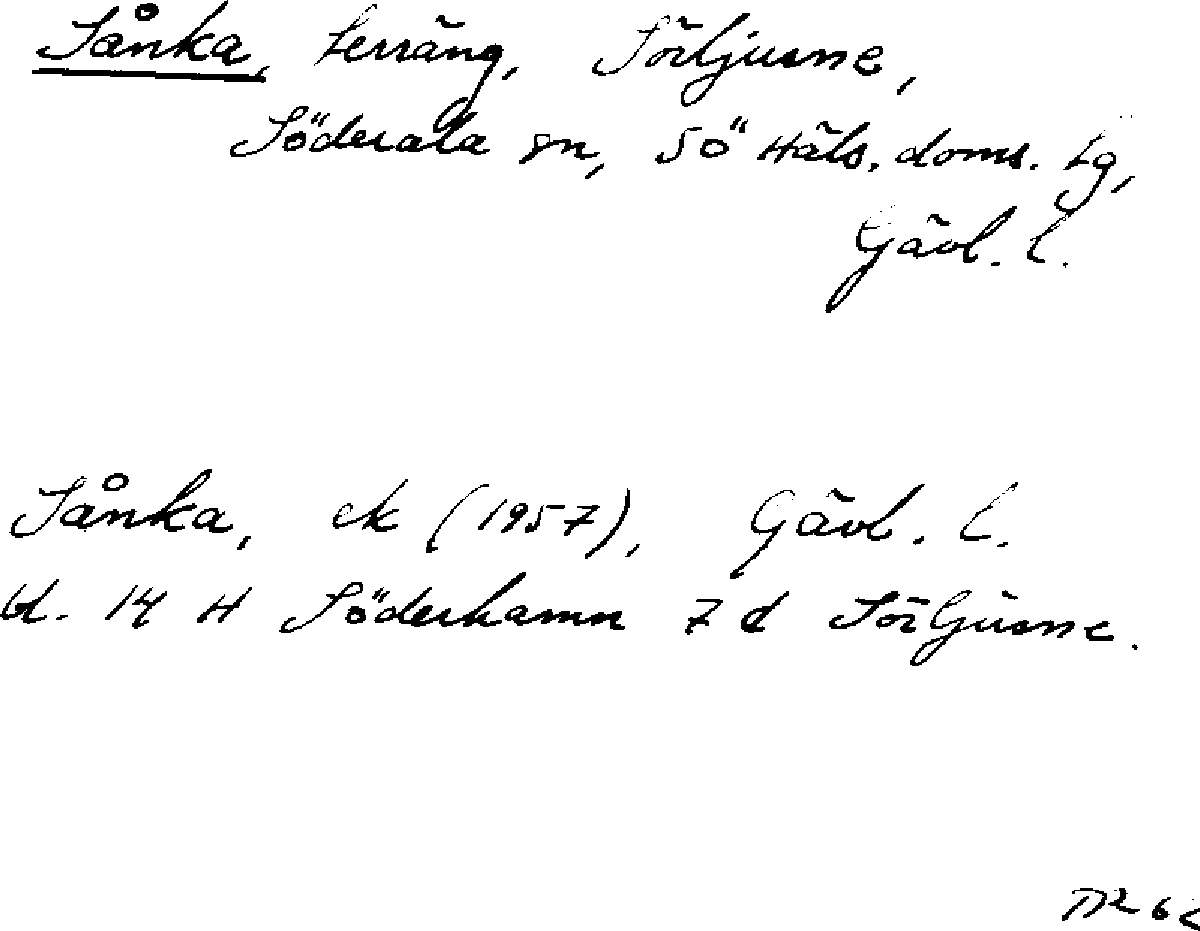 Sånka, terräng, Sörljusne,
Söderala sn, SÖ Häls. doms. lg,
Gävl. l.
Sånka, ek (1957), Gävl. l.
bl. 14 H Söderhamn 7 d Sörljusne.